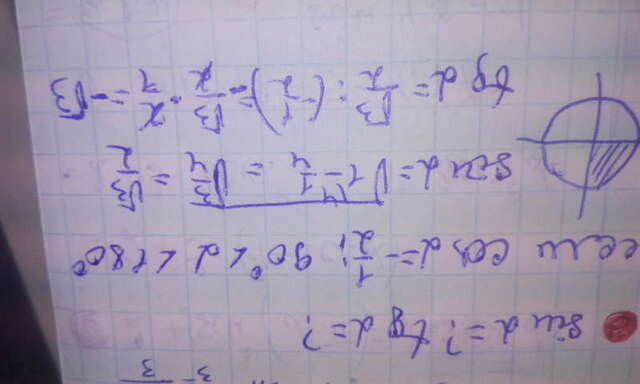 sin α = ? tg α = ?
если cos α = -1/2; 90° < α < 180°
sin α = √1 - 1/4 = √3/4 = √3/2
tg α = √3/2 : (-1/2) = -√3/2 · 2/1 = -√3